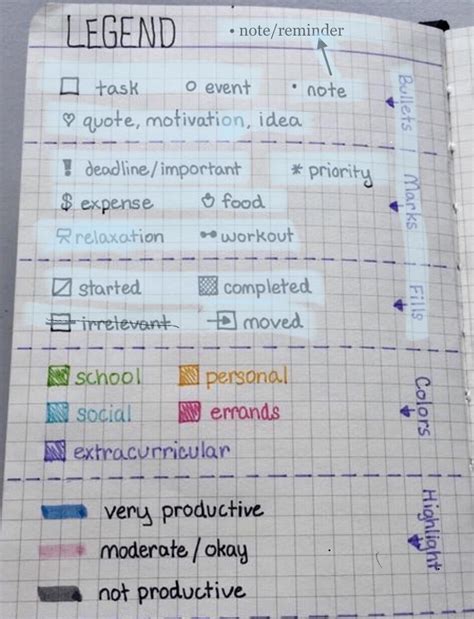 LEGEND
• note/reminder
task
event
• note
quote, motivation, idea
Bullets
! deadline/important
* priority
$ expense
food
relaxation
workout
Marks
started
completed
irrelevant
moved
Fills
school
personal
social
errands
extracurricular
Colors
very productive
moderate/okay
not productive
Highlight